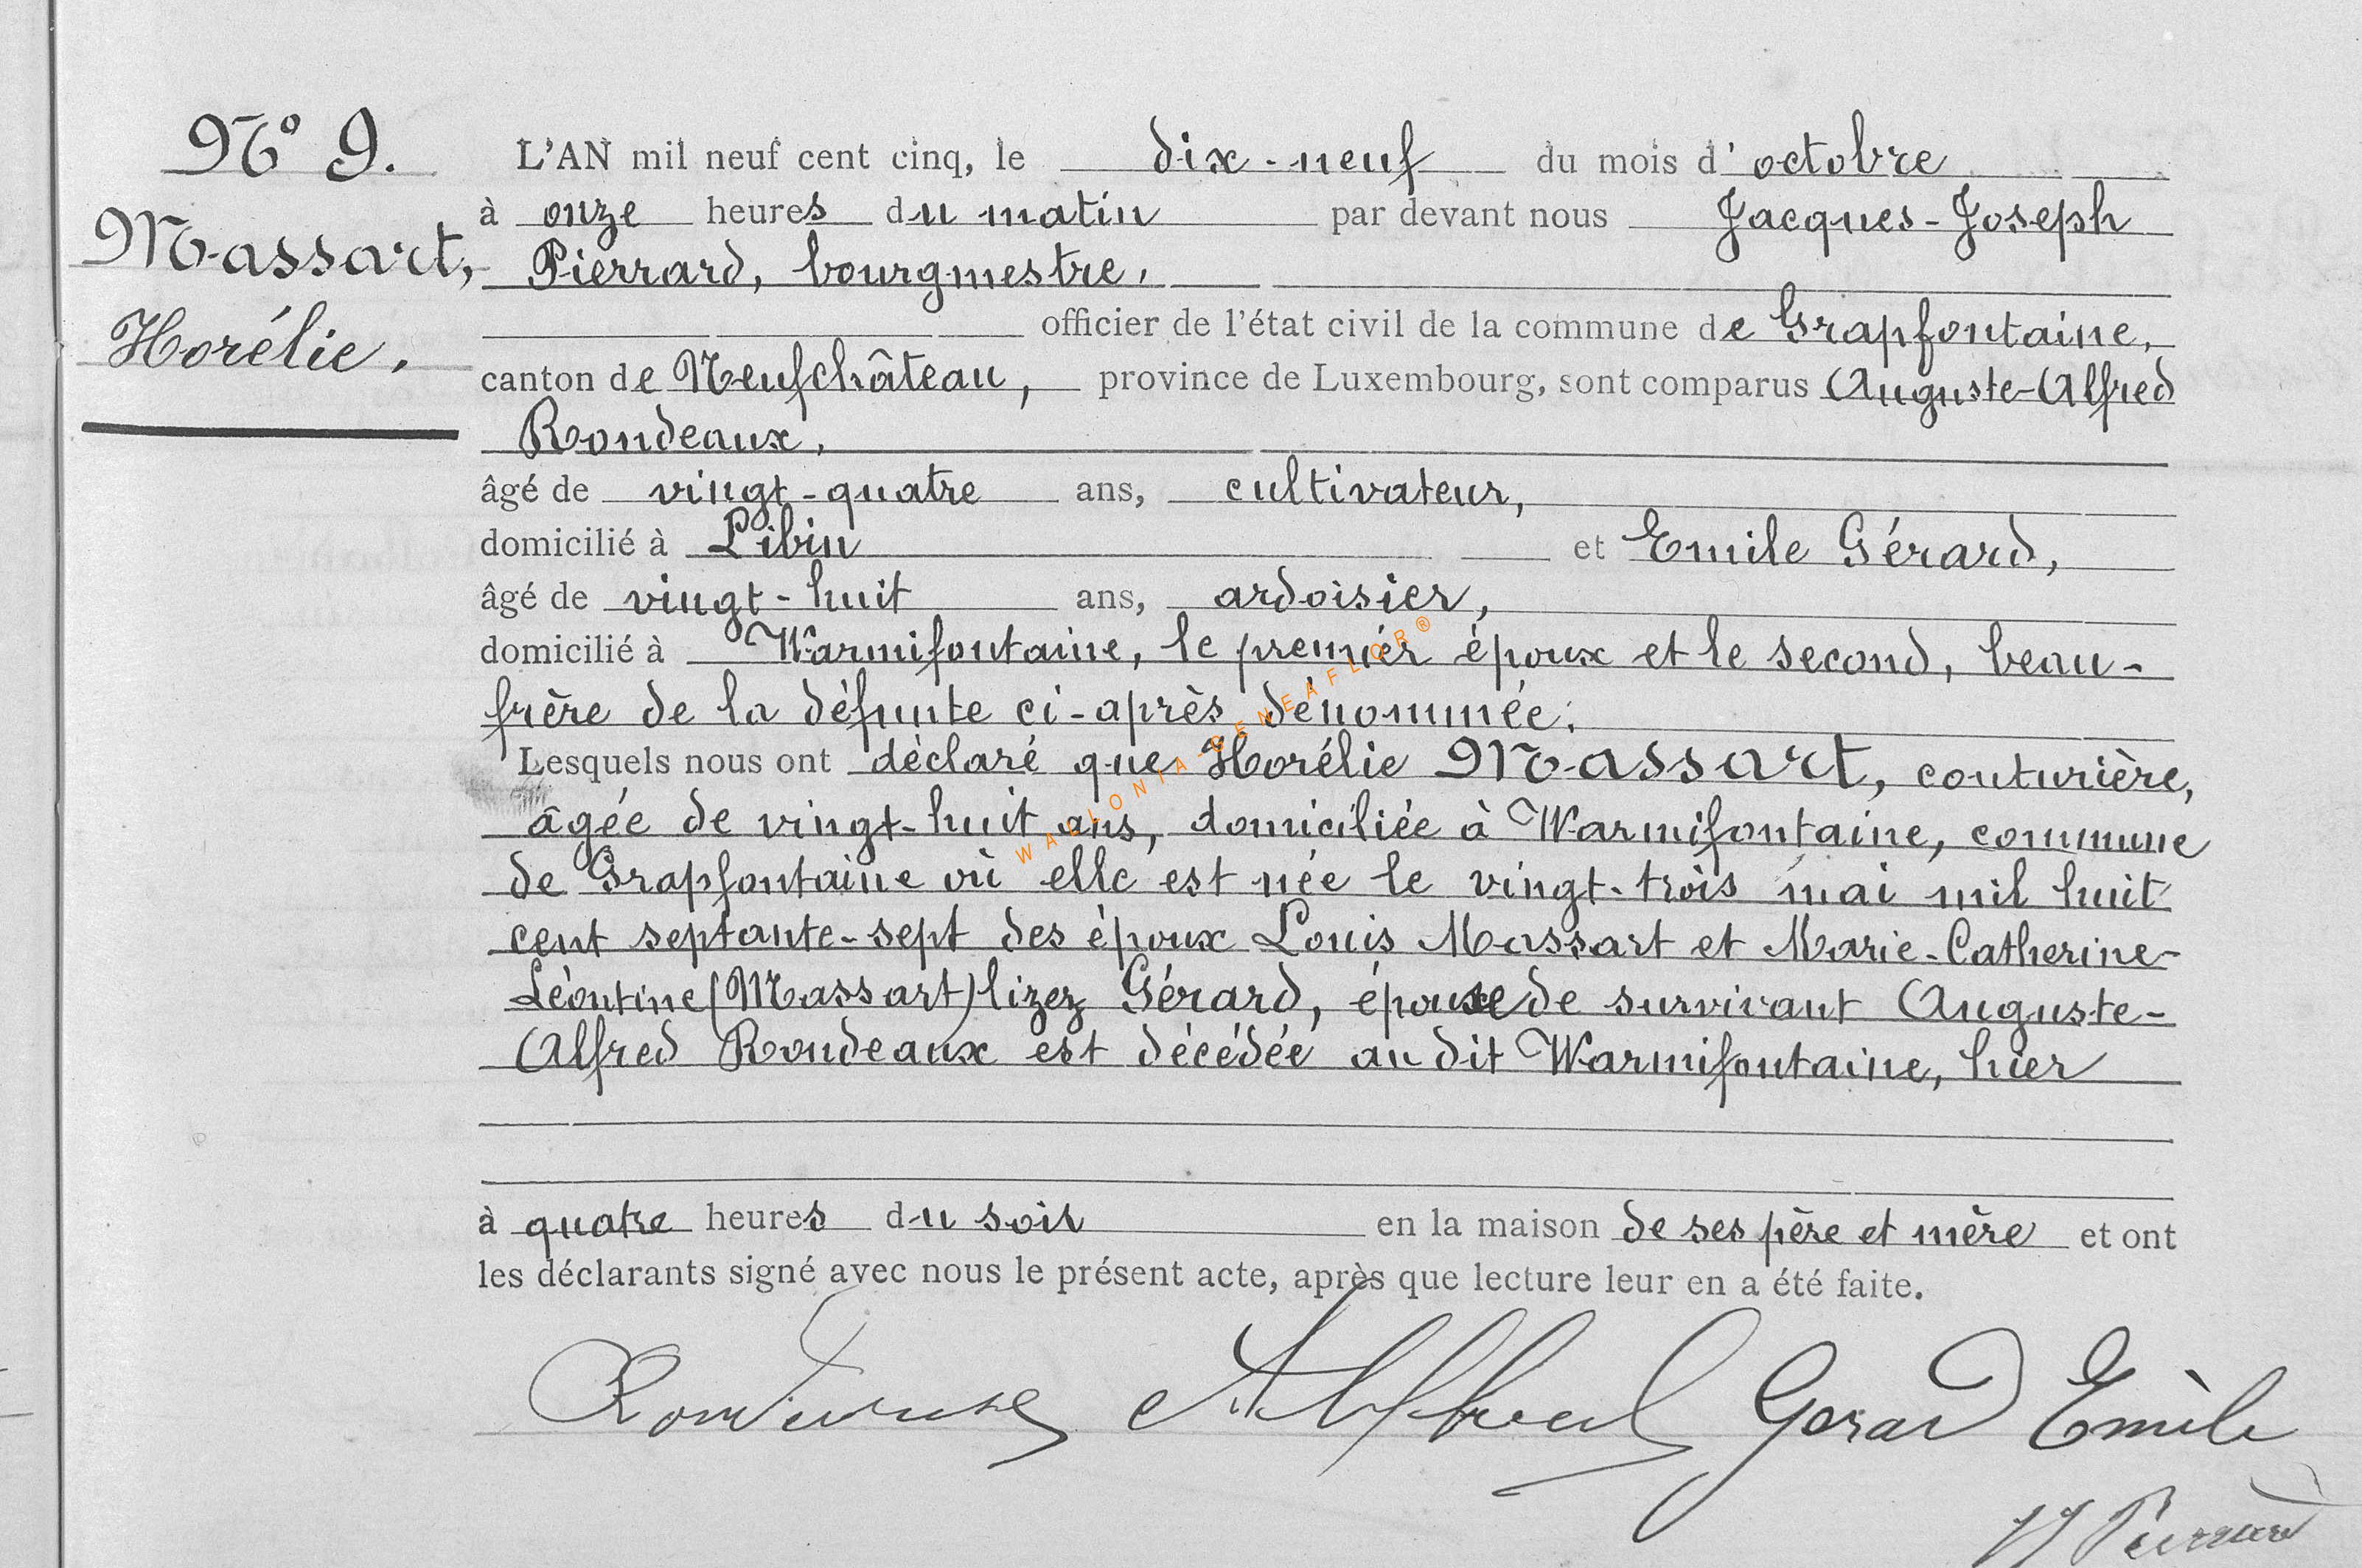 N° 9.
Massart,
Horélie.
L'AN mil neuf cent cinq, le dix-neuf du mois d'octobre
à onze heures du matin par devant nous Jacques-Joseph
Pierrard, bourgmestre.
officier de l'état civil de la commune de Grapfontaine,
canton de Neufchâteau, province de Luxembourg, sont comparus Auguste-Alfred
Rondeaux,
âgé de vingt-quatre ans, cultivateur,
domicilié à Libin et Emile Gérard,
âgé de vingt-huit ans, ardoisier,
domicilié à Warmifontaine, le premier époux et le second, beau-
frère de la défunte ci-après dénommée;
Lesquels nous ont déclaré que Horélie Massart, couturière,
âgée de vingt-huit ans, domiciliée à Warmifontaine, commune
de Grapfontaine où elle est née le vingt-trois mai mil huit
cent septante-sept des époux Louis Massart et Marie-Catherine-
Léontine (Massart) lizez Gérard, épouse de survivant Auguste-
Alfred Rondeaux est décédée au dit Warmifontaine, hier
à quatre heures du soir en la maison de ses père et mère et ont
les déclarants signé avec nous le présent acte, après que lecture leur en a été faite.
Rondeaux Alfred Gerard Emile
JJ Pierrard
WALLONIA-GENEAFLOR®